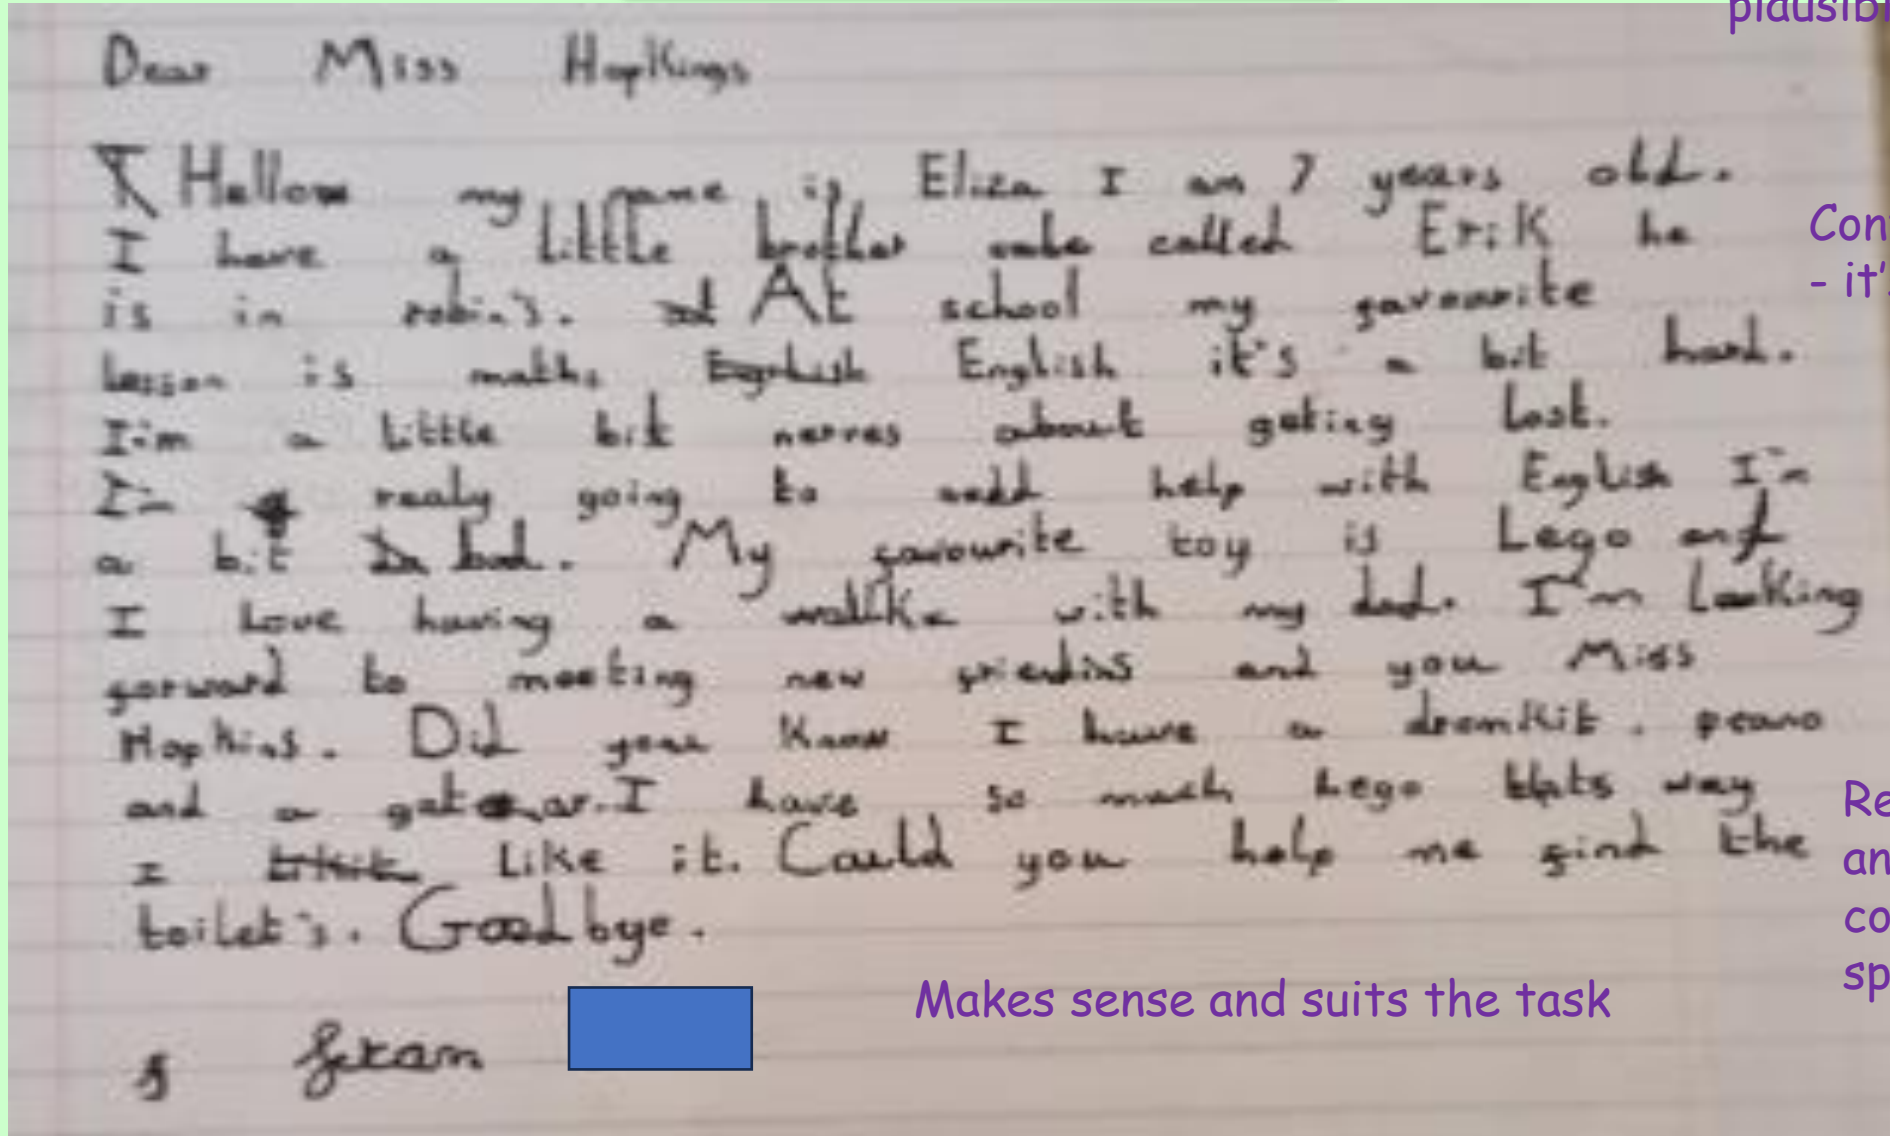 plausibl
Dear Miss Hopkings
Hellow my name is Eliza I am 7 years old.
I have a little brother called Erik he
is in robin's. At school my favourite
lesson is maths English English it's a bit hard.
I'm a little bit nerves about geting lost.
I'm realy going to need help with English I'm
a bit bad. My favourite toy is Lego and
I Love having a walk with my dad. I'm looking
forward to meeting new and you Miss
Hopkins. Did you Know I have a dromkit. peano
and a I have so much Lego thats way
I Like it. Could you help me find the
toilet's. Goodbye.
Con
- it's
Re
an
co
sp
Makes sense and suits the task